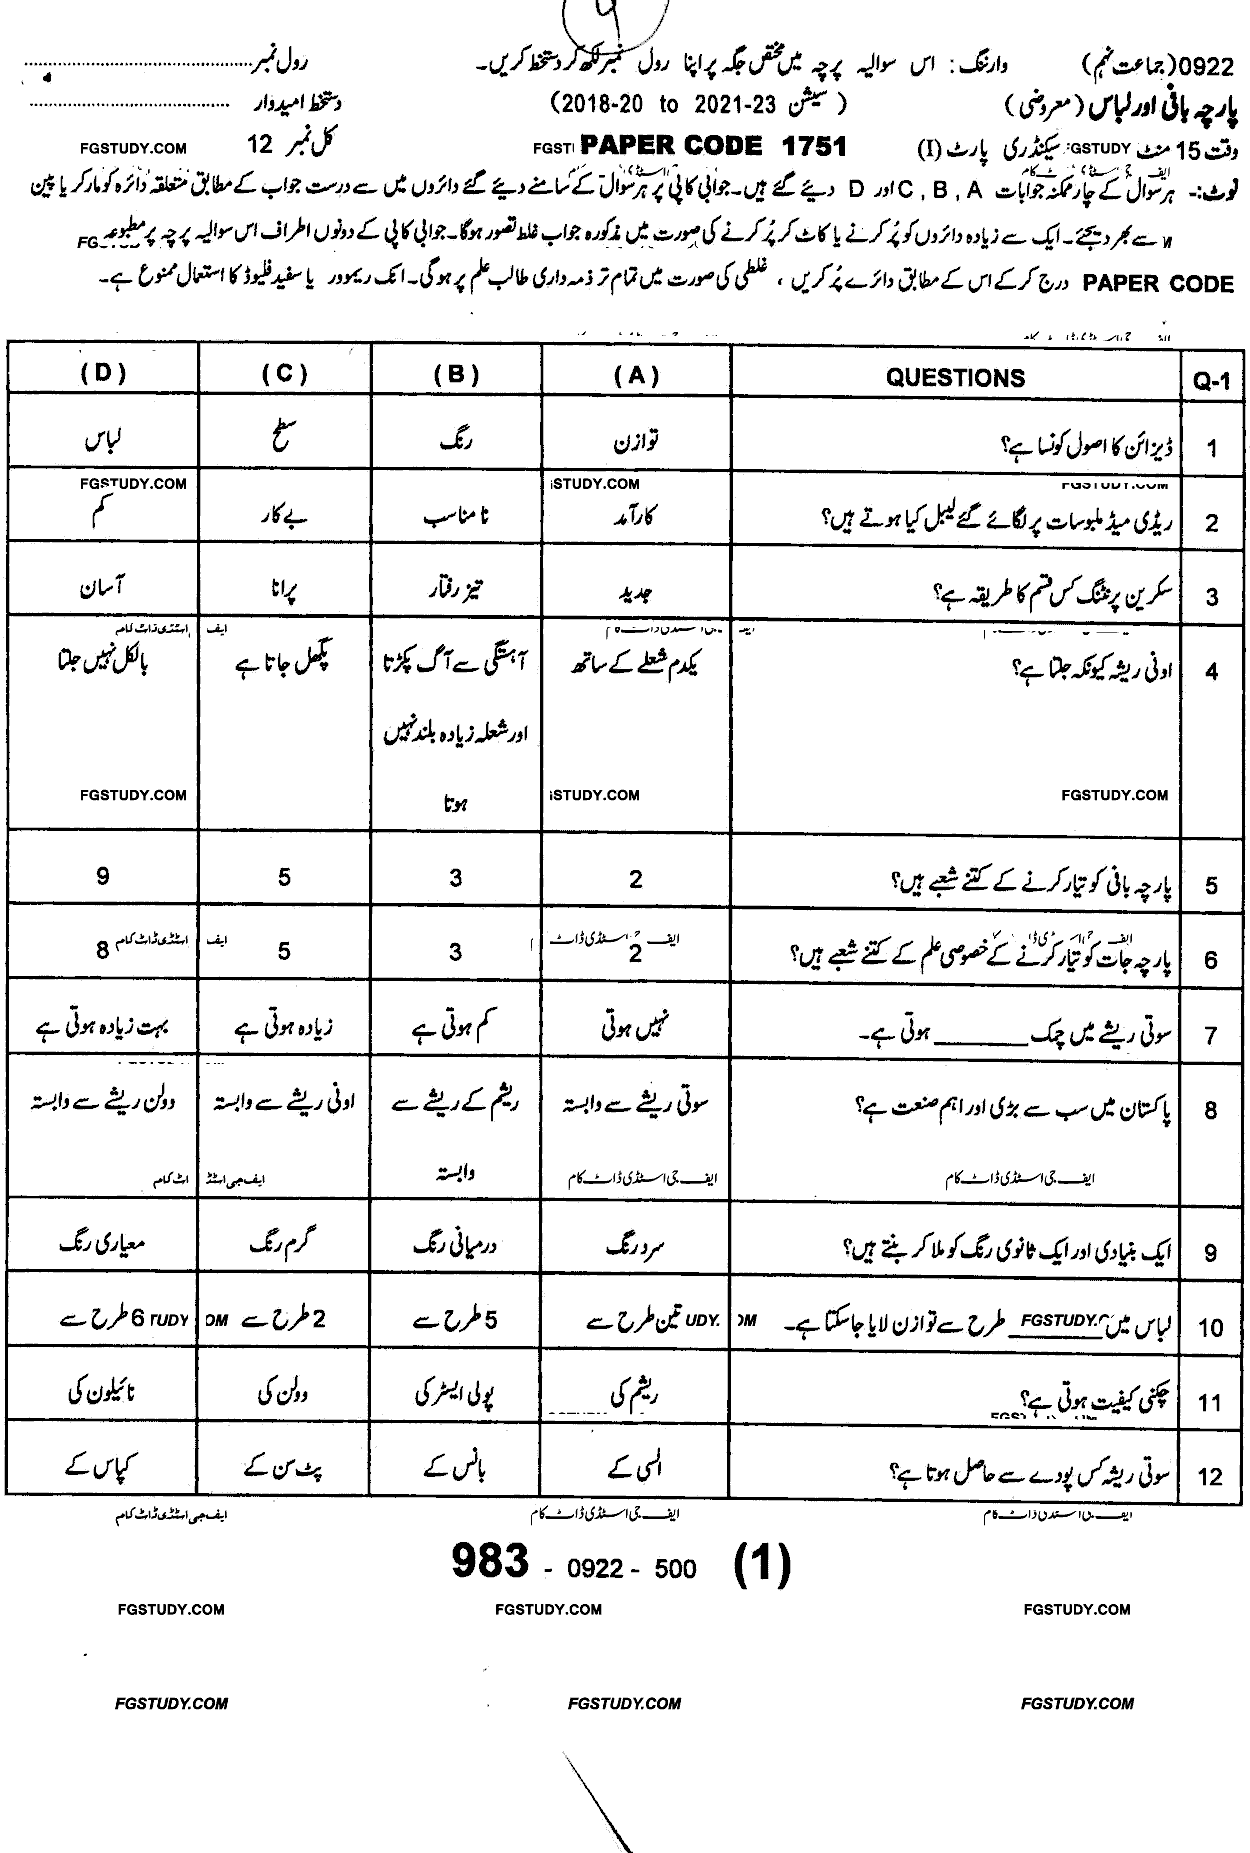 0922(جماعت نہم) وارننگ: اس سوالیہ پرچہ میں مختص جگہ پر اپنا رول نمبر لکھ کر دستخط کریں۔ رول نمبر
پارچہ بافی اور لباس (معروضی) (سیشن 2018-20 to 2021-23) دستخط امیدوار
وقت 15 منٹ سیکنڈری پارٹ (I) PAPER CODE 1751 کل نمبر 12 FGSTUDY.COM
نوٹ:- ہر سوال کے چار ممکنہ جوابات A , B , C اور D دیئے گئے ہیں۔ جوابی کاپی پر ہر سوال کے سامنے دیئے گئے دائروں میں سے درست جواب کے مطابق متعلقہ دائرہ کو مارکر یا پین
سے بھر دیجئے۔ ایک سے زیادہ دائروں کو پُر کرنے یا کاٹ کر پُر کرنے کی صورت میں مذکورہ جواب غلط تصور ہوگا۔ جوابی کاپی کے دونوں اطراف اس سوالیہ پرچہ پر مطبوعہ
PAPER CODE درج کرکے اس کے مطابق دائرے پُر کریں ، غلطی کی صورت میں تمام تر ذمہ داری طالب علم پر ہوگی۔ انک ریموور یا سفید فلیوڈ کا استعمال ممنوع ہے۔
Q-1 QUESTIONS (A) (B) (C) (D)
1 ڈیزائن کا اصول کونسا ہے؟ توازن رنگ سطح لباس
FGSTUDY.COM FGSTUDY.COM
2 ریڈی میڈ ملبوسات پر لگائے گئے لیبل کیا ہوتے ہیں؟ کارآمد نامناسب بے کار کم
3 سکرین پرنٹنگ کس قسم کا طریقہ ہے؟ جدید تیز رفتار پرانا آسان
4 اونی ریشہ کیونکہ جلتا ہے؟ یکدم شعلے کے ساتھ آہستگی سے آگ پکڑتا پگھل جاتا ہے بالکل نہیں جلتا
اور شعلہ زیادہ بلند نہیں
ہوتا
FGSTUDY.COM FGSTUDY.COM
5 پارچہ بافی کو تیار کرنے کے کتنے شعبے ہیں؟ 2 3 5 9
6 پارچہ جات کو تیار کرنے کے خصوصی علم کے کتنے شعبے ہیں؟ 2 3 5 8
7 سوتی ریشے میں چمک ______ ہوتی ہے۔ نہیں ہوتی کم ہوتی ہے زیادہ ہوتی ہے بہت زیادہ ہوتی ہے
8 پاکستان میں سب سے بڑی اور اہم صنعت ہے؟ سوتی ریشے سے وابستہ ریشم کے ریشے سے اونی ریشے سے وابستہ وولن ریشے سے وابستہ
وابستہ
ایف جی اسٹڈی ڈاٹ کام ایف جی اسٹڈی ڈاٹ کام
9 ایک بنیادی اور ایک ثانوی رنگ کو ملا کر بنتے ہیں؟ سرد رنگ درمیانی رنگ گرم رنگ معیاری رنگ
10 لباس میں ______ طرح سے توازن لایا جاسکتا ہے۔ تین طرح سے 5 طرح سے 2 طرح سے 6 طرح سے
11 چکنی کیفیت ہوتی ہے؟ ریشم کی پولی ایسٹر کی وولن کی نائیلون کی
12 سوتی ریشہ کس پودے سے حاصل ہوتا ہے؟ السی کے بانس کے پٹ سن کے کپاس کے
ایف جی اسٹڈی ڈاٹ کام ایف جی اسٹڈی ڈاٹ کام ایف جی اسٹڈی ڈاٹ کام
983 - 0922 - 500 (1)
FGSTUDY.COM FGSTUDY.COM FGSTUDY.COM
FGSTUDY.COM FGSTUDY.COM FGSTUDY.COM